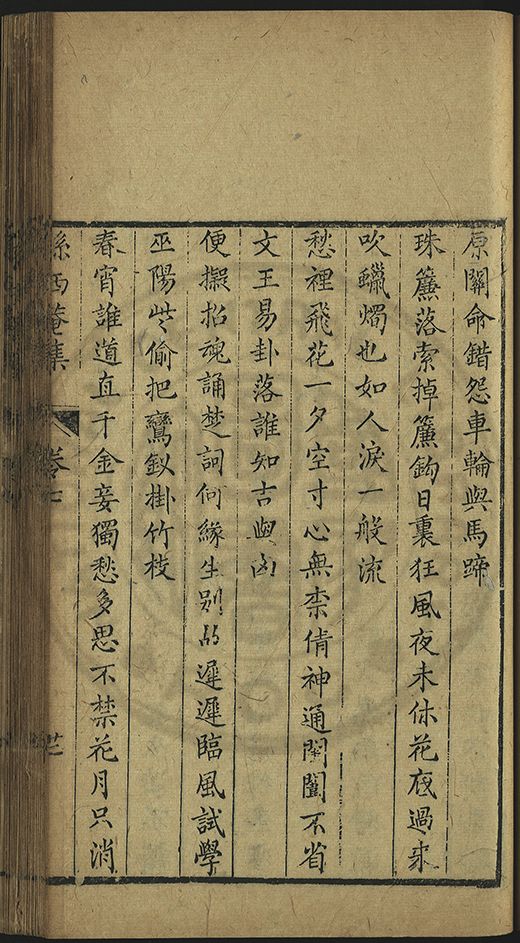 原關命錯怨車輪與馬蹄
珠簾落索掉簾鈎日裏狂風夜未休花底過来
吹蠟燭也如人淚一般流
愁裡飛花一夕空寸心無柰倩神通閨闈不省
文王易卦落誰知吉與凶
便擬招魂誦楚詞何緣生别的遲遲臨風試學
巫陽些偷把鸞釵掛竹枝
春宵誰道直千金妾獨愁多思不禁花月只消
孫西菴集 卷七